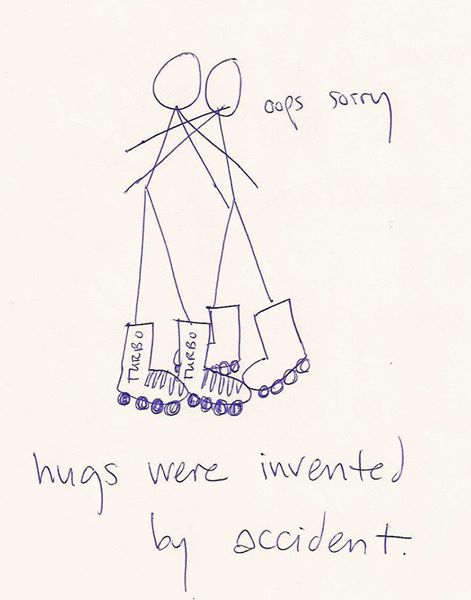 oops sorry
TURBO
TURBO
hugs were invented
by accident.